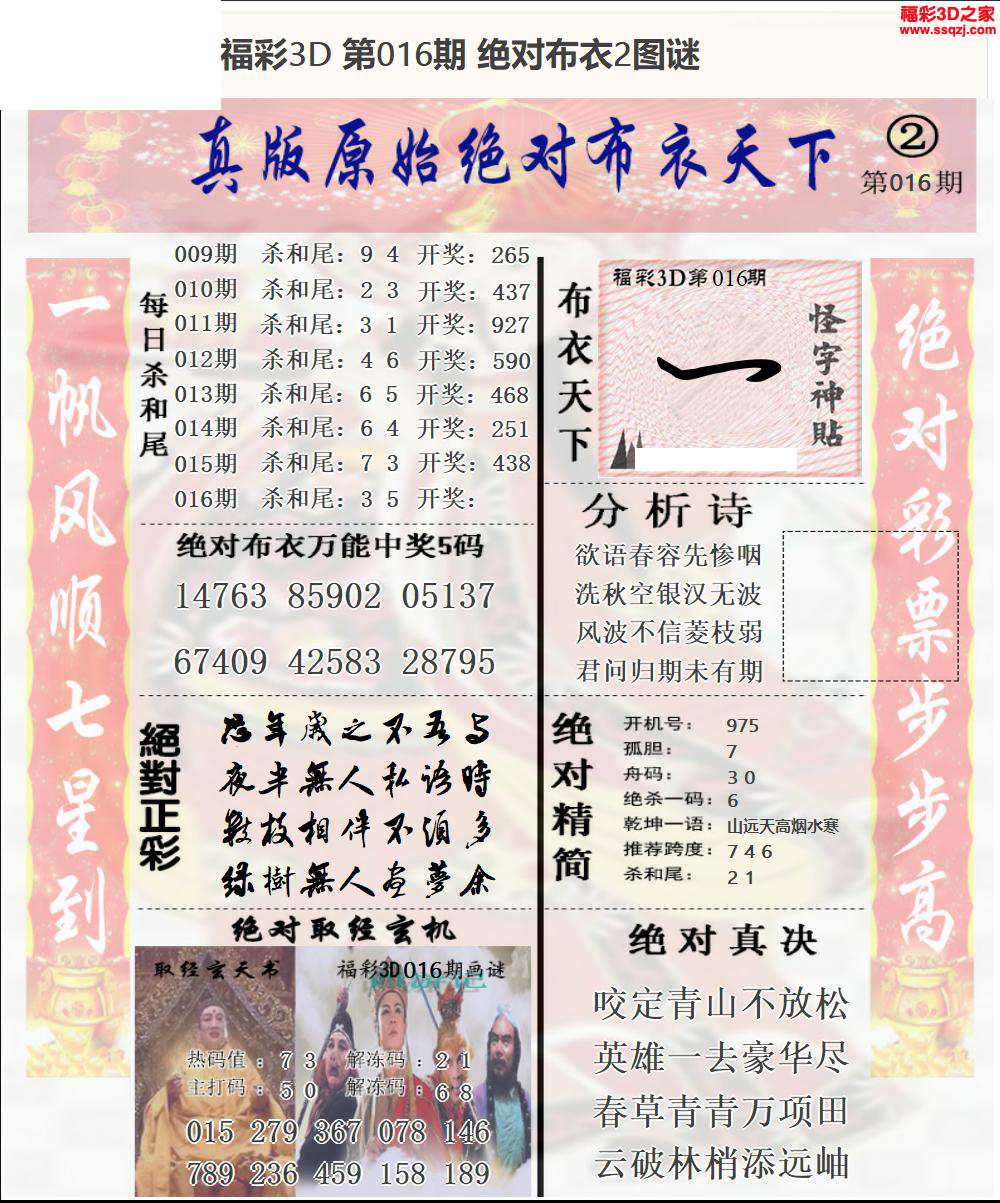 福彩3D之家
www.ssqzj.com
福彩3D 第016期 绝对布衣2图谜
真版原始绝对布衣天下
②
第016期
一帆风顺七星到
每日杀和尾
009期 杀和尾：9 4 开奖：265
010期 杀和尾：2 3 开奖：437
011期 杀和尾：3 1 开奖：927
012期 杀和尾：4 6 开奖：590
013期 杀和尾：6 5 开奖：468
014期 杀和尾：6 4 开奖：251
015期 杀和尾：7 3 开奖：438
016期 杀和尾：3 5 开奖：
绝对布衣万能中奖5码
14763 85902 05137
67409 42583 28795
絕對正彩
年歲之不吾与
夜半無人私语時
数枝相伴不須多
绿樹無人昼夢余
绝对取经玄机
取经玄天书
福彩3D016期画谜
热码值：7 3 解冻码：2 1
主打码：5 0 解冻码：6 8
015 279 367 078 146
789 236 459 158 189
布衣天下
福彩3D第016期
一
怪字神貼
分析诗
欲语春容先惨咽
洗秋空银汉无波
风波不信菱枝弱
君问归期未有期
绝对精简
开机号：975
孤胆：7
舟码：3 0
绝杀一码：6
乾坤一语：山远天高烟水寒
推荐跨度：7 4 6
杀和尾：2 1
绝对真决
咬定青山不放松
英雄一去豪华尽
春草青青万项田
云破林梢添远岫
绝对彩票步步高